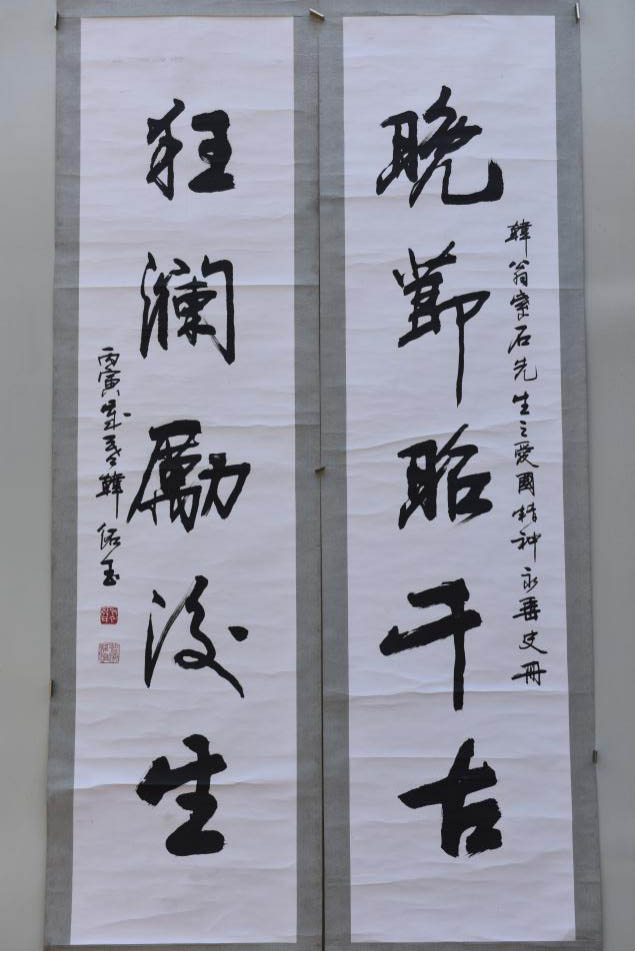 韓翁紫石先生之愛國精神永垂史冊
晚節昭千古
狂瀾勵後生
丙寅年春韓